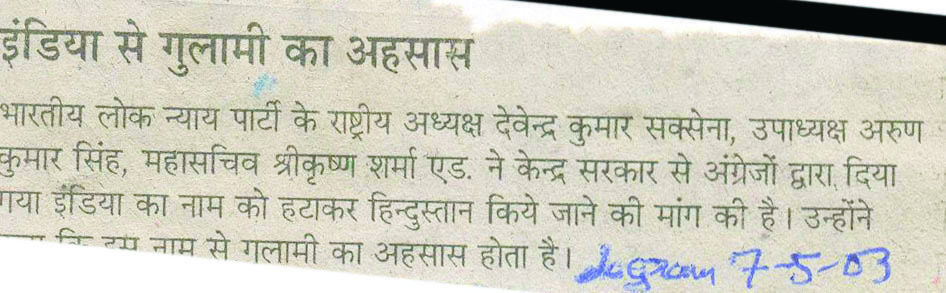 इंडिया से गुलामी का अहसास
भारतीय लोक न्याय पार्टी के राष्ट्रीय अध्यक्ष देवेन्द्र कुमार सक्सेना, उपाध्यक्ष अरुण
कुमार सिंह, महासचिव श्रीकृष्ण शर्मा एड. ने केन्द्र सरकार से अंग्रेजों द्वारा दिया
गया इंडिया का नाम को हटाकर हिन्दुस्तान किये जाने की मांग की है। उन्होंने
कि इस नाम से गुलामी का अहसास होता है। Jagran 7-5-03